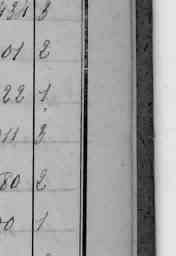 431 3
01 2
22 1
11 3
80 2
70 1